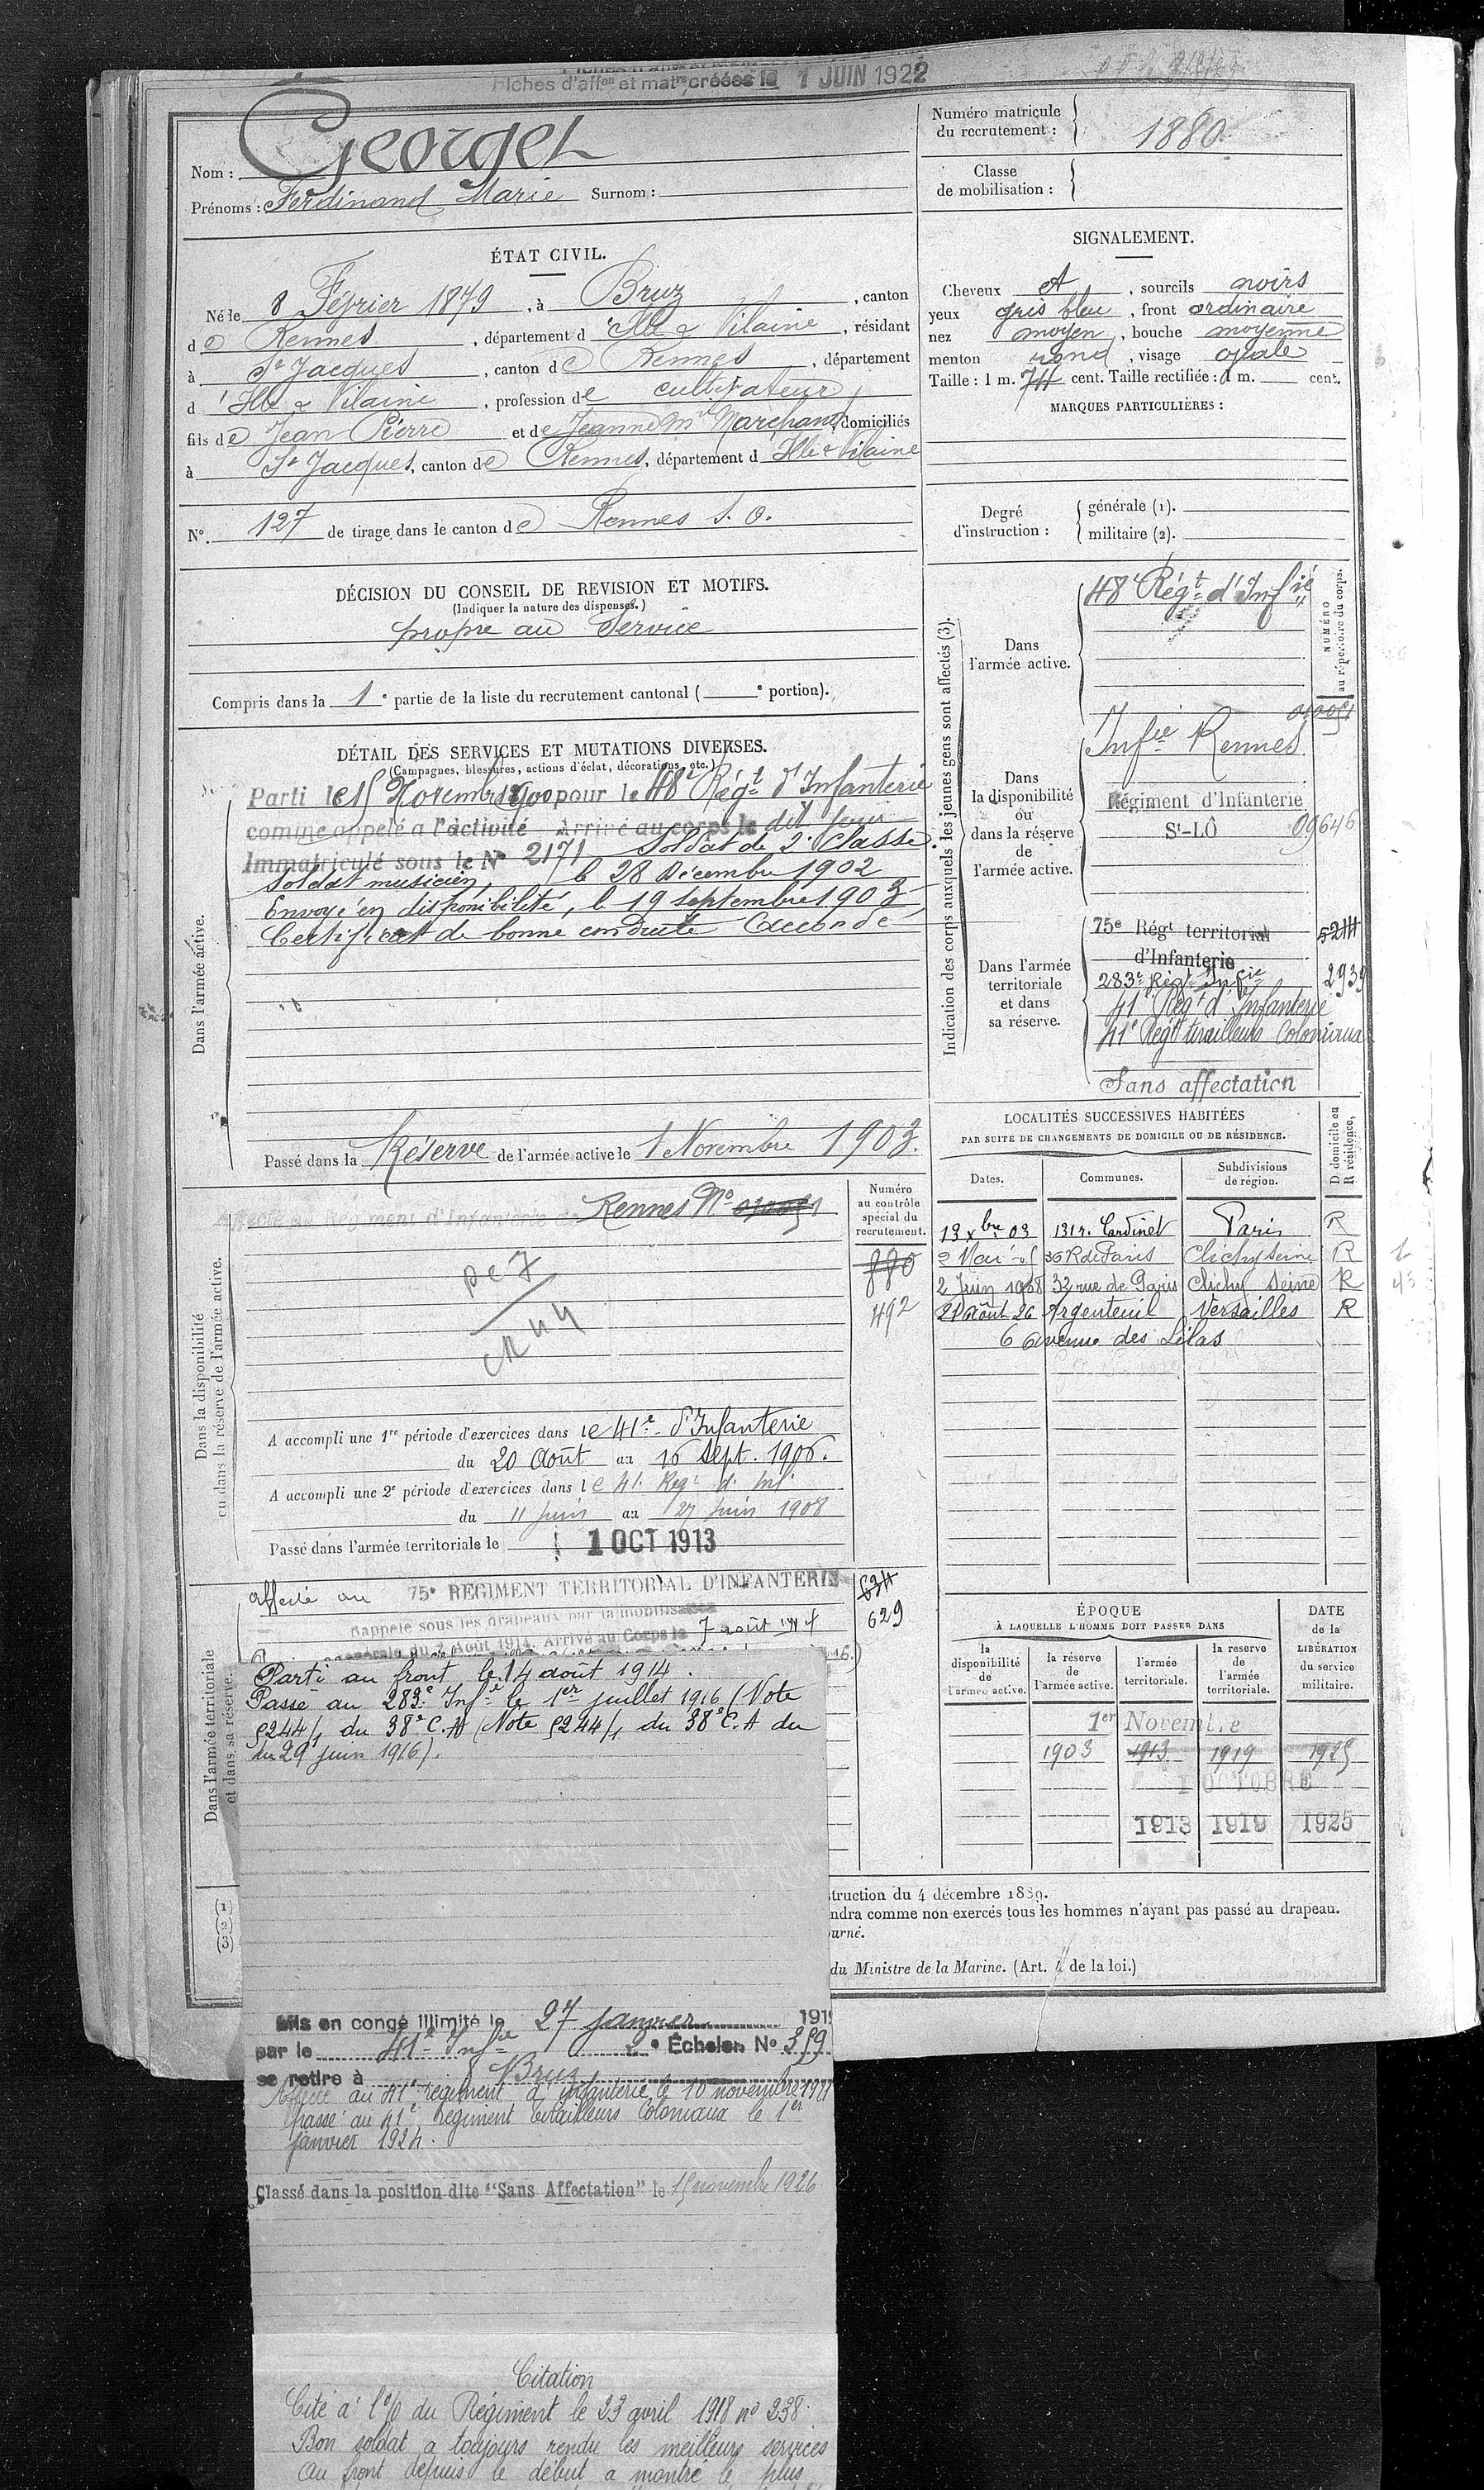 Fiches d'aff^on et mat^re créées le 1 JUIN 1922
Nom : Georget
Prénoms : Ferdinand Marie Surnom :
Numéro matricule du recrutement : 1880.
Classe de mobilisation :
ÉTAT CIVIL.
Né le 8 Février 1879, à Bruz, canton
de Rennes, département d'Ille & Vilaine, résidant
à St Jacques, canton de Rennes, département
d'Ille & Vilaine, profession de cultivateur
fils de Jean Pierre et de Jeanne M^ie Marchand, domiciliés
à St Jacques, canton de Rennes, département d Ille & Vilaine
N° 127 de tirage dans le canton de Rennes S. O.
SIGNALEMENT.
Cheveux et, sourcils noirs
yeux gris bleu, front ordinaire
nez moyen, bouche moyenne
menton rond, visage ovale
Taille : 1 m. 74 cent. Taille rectifiée : 1 m. cent.
MARQUES PARTICULIÈRES :
Degré d'instruction : générale (1).
militaire (2).
DÉCISION DU CONSEIL DE REVISION ET MOTIFS.
(Indiquer la nature des dispenses.)
propre au Service
Compris dans la 1e partie de la liste du recrutement cantonal ( e portion).
DÉTAIL DES SERVICES ET MUTATIONS DIVERSES.
(Campagnes, blessures, actions d'éclat, décorations, etc.)
Dans l'armée active.
Parti le 15 Novembre 1900 pour le 48e Rég^t d'Infanterie
comme appelé a l'activité Arrivé au corps le dit jour
Immatriculé sous le N° 2171 Soldat de 2e Classe.
Soldat musicien, le 28 Décembre 1902
Envoyé en disponibilité, le 19 Septembre 1903
Certificat de bonne conduite Accordé
Passé dans la Réserve de l'armée active le 1 Novembre 1903.
Indication des corps auxquels les jeunes gens sont affectés (3).
NUMÉRO au répertoire du corps.
Dans l'armée active.
48e Rég^t d'Inf^ie
Dans la disponibilité ou dans la réserve de l'armée active.
Inf^ie Rennes
Régiment d'Infanterie
S^t-LÔ 09646
Dans l'armée territoriale et dans sa réserve.
75e Rég^t territorial 5244
d'Infanterie
283e Rég^t Inf^ie 2939
41e Rég^t d'Infanterie
41e Rég^t tirailleurs Coloniaux
Sans affectation
LOCALITÉS SUCCESSIVES HABITÉES
PAR SUITE DE CHANGEMENTS DE DOMICILE OU DE RÉSIDENCE.
D domicile ou R résidence.
Dates. Communes. Subdivisions de région.
13 x^bre 03 131 r. Cardinet Paris R
2 Mai 05 36 R de Paris Clichy Seine R
2 Juin 1908 32 rue de Paris Clichy Seine R
21 août 26 Argenteuil Versailles R
6 avenue des Lilas
Dans la disponibilité ou dans la réserve de l'armée active.
Numéro au contrôle spécial du recrutement.
Affecté au Régiment d'Infanterie de Rennes N°
880
492
A accompli une 1re période d'exercices dans le 41e d'Infanterie
du 20 Août au 16 Sept. 1906.
A accompli une 2e période d'exercices dans le 41e Reg^t d'Inf^ie
du 11 juin au 27 juin 1908
Passé dans l'armée territoriale le 1 OCT 1913
Dans l'armée territoriale et dans sa réserve.
affecté au 75e REGIMENT TERRITORIAL D'INFANTERIE 634
Rappelé sous les drapeaux par la mobilisation 629
générale du 2 Août 1914. Arrivé au Corps le 7 août 1914
Parti au front le 14 août 1914.
Passé au 283e Inf^ie le 1er juillet 1916 (Note
5244/1 du 38e C.A (Note 5244/1 du 38e C.A du
du 29 juin 1916).
Mis en congé illimité le 27 janvier 191
par le 41e Inf^ie 2e Échelon N° 359
se retire à Bruz
Affecté au 41e régiment d'infanterie le 10 novembre 1921
Passé au 41e régiment tirailleurs Coloniaux le 1er
janvier 1924.
Classé dans la position dite "Sans Affectation" le 15 novembre 1926
Citation
Cité à l'% du Régiment le 23 avril 1918 n° 238.
Bon soldat a toujours rendu les meilleurs services
au front depuis le début a montré le plus
ÉPOQUE
À LAQUELLE L'HOMME DOIT PASSER DANS
DATE de la LIBÉRATION du service militaire.
la disponibilité de l'armée active. la réserve de l'armée active. l'armée territoriale. la reserve de l'armée territoriale.
1er Novembre
1903 1913 1919 1925
1 OCTOBRE
1913 1919 1925
struction du 4 décembre 1889.
ndra comme non exercés tous les hommes n'ayant pas passé au drapeau.
ourné.
du Ministre de la Marine. (Art. 4 de la loi.)
(1)
(2)
(3)